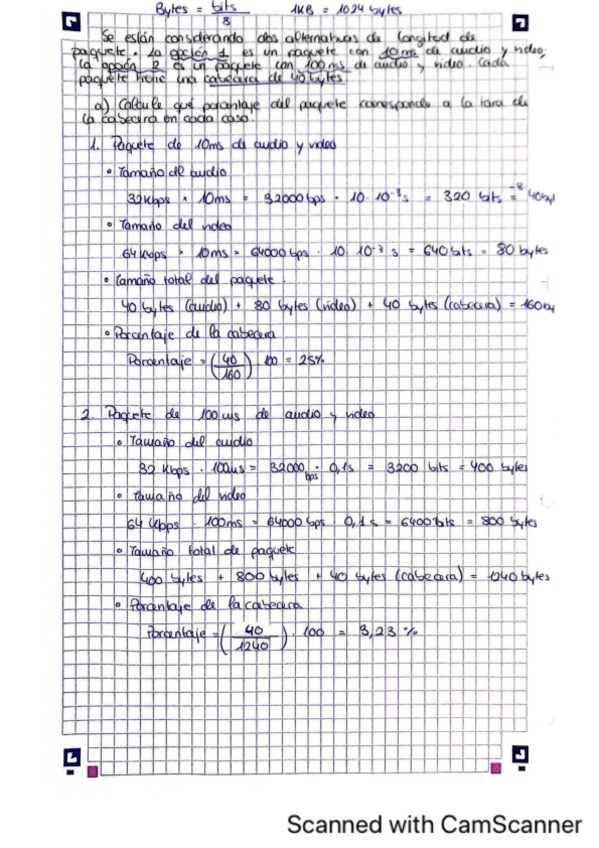 Bytes = bits / 8 1KB = 1024 bytes
Se están considerando dos alternativas de longitud de
paquete. La opción 1 es un paquete con 10ms de audio y video,
la opción 2 es un paquete con 100ms de audio y video. Cada
paquete tiene una cabecera de 40 bytes
a) Calcule qué porcentaje del paquete corresponde a la tara de
la cabecera en cada caso.
1. Paquete de 10ms de audio y video
• Tamaño del audio
32Kbps · 10ms = 32000bps · 10·10⁻³s = 320 bits = 40
• Tamaño del video
64Kbps · 10ms = 64000bps · 10·10⁻³ s = 640bits = 80 bytes
• Tamaño total del paquete.
40 bytes (audio) + 80 bytes (video) + 40 bytes (cabecera) = 160
• Porcentaje de la cabecera
Porcentaje = (40/160) · 100 = 25%
2. Paquete de 100ms de audio y video
• Tamaño del audio
32 Kbps · 100ms = 32000 bps · 0,1s = 3200 bits = 400 bytes
• Tamaño del video
64 Kbps · 100ms = 64000bps · 0,1s = 6400 bits = 800 bytes
• Tamaño total de paquete
400 bytes + 800 bytes + 40 bytes (cabecera) = 1240 bytes
• Porcentaje de la cabecera
Porcentaje = (40/1240) · 100 = 3,23 %
Scanned with CamScanner